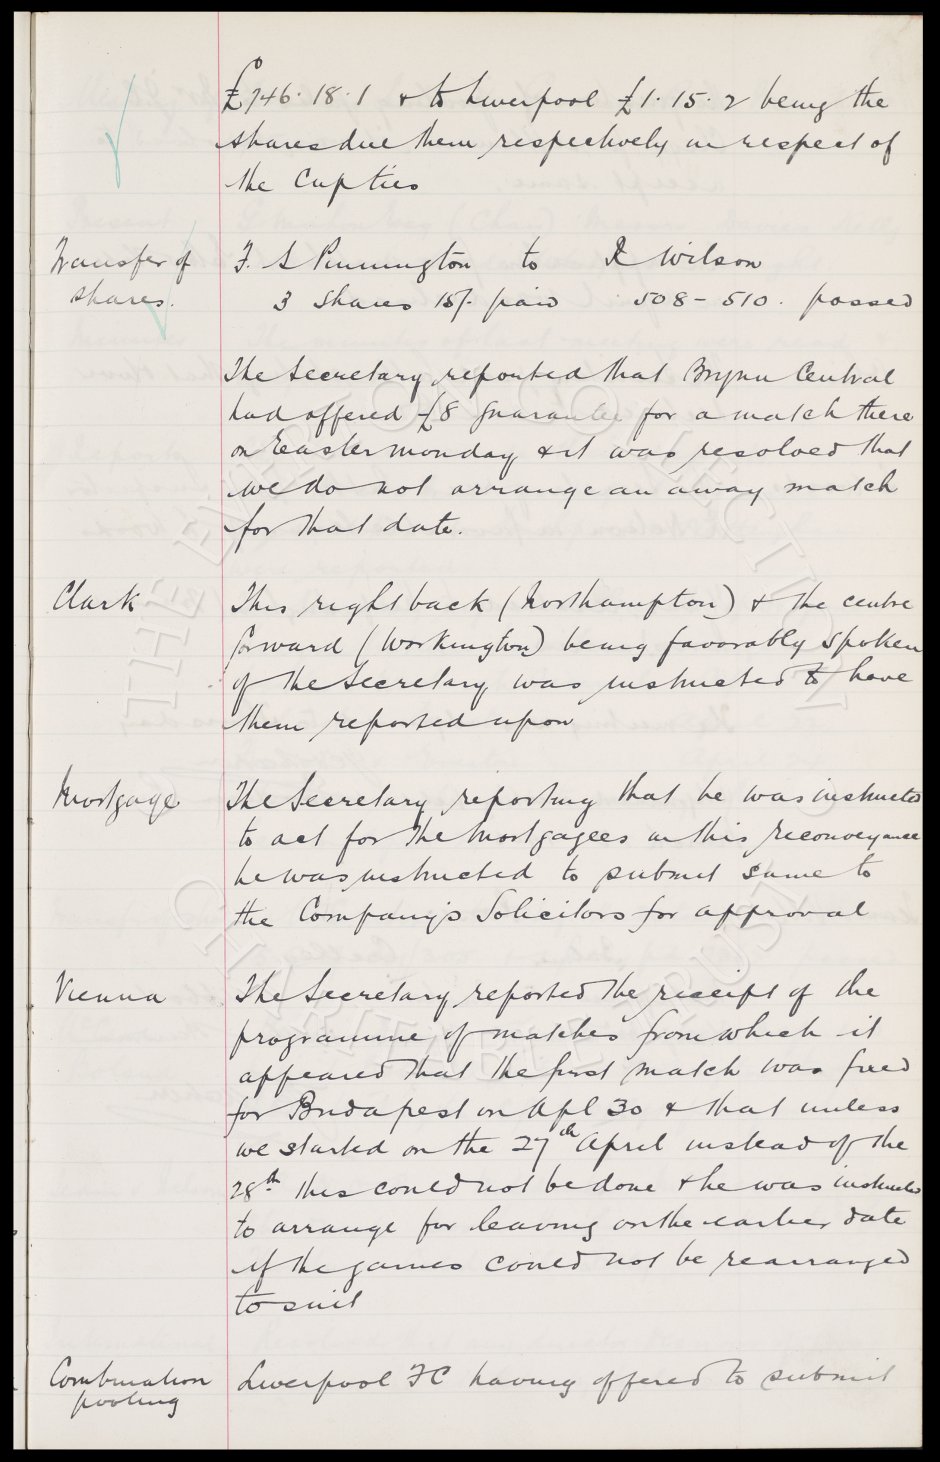 £746. 18. 1 & to Liverpool £1. 15. 2 being the
shares due them respectively in respect of
the Cup ties
Transfer of
shares.
F. S Pinnington to R Wilson
3 Shares 15/- paid 508 - 510. passed
The Secretary reported that Brynn Central
had offered £8 guarantee for a match there
on Easter Monday & it was resolved that
we do not arrange an away match
for that date.
Clark
This right back (Northampton) & the centre
forward (Workington) being favorably spoken
of the Secretary was instructed to have
them reported upon
Mortgage
The Secretary reporting that he was instructed
to act for the Mortgagees in this reconveyance
he was instructed to submit same to
the Company's Solicitors for approval
Vienna
The Secretary reported the receipt of the
programme of matches from which it
appeared that the first match was fixed
for Budapest on Apl 30 & that unless
we started on the 27th April instead of the
28th this could not be done & he was instructed
to arrange for leaving on the earlier date
if the games could not be rearranged
to suit
Combination
pooling
Liverpool FC having offered to submit